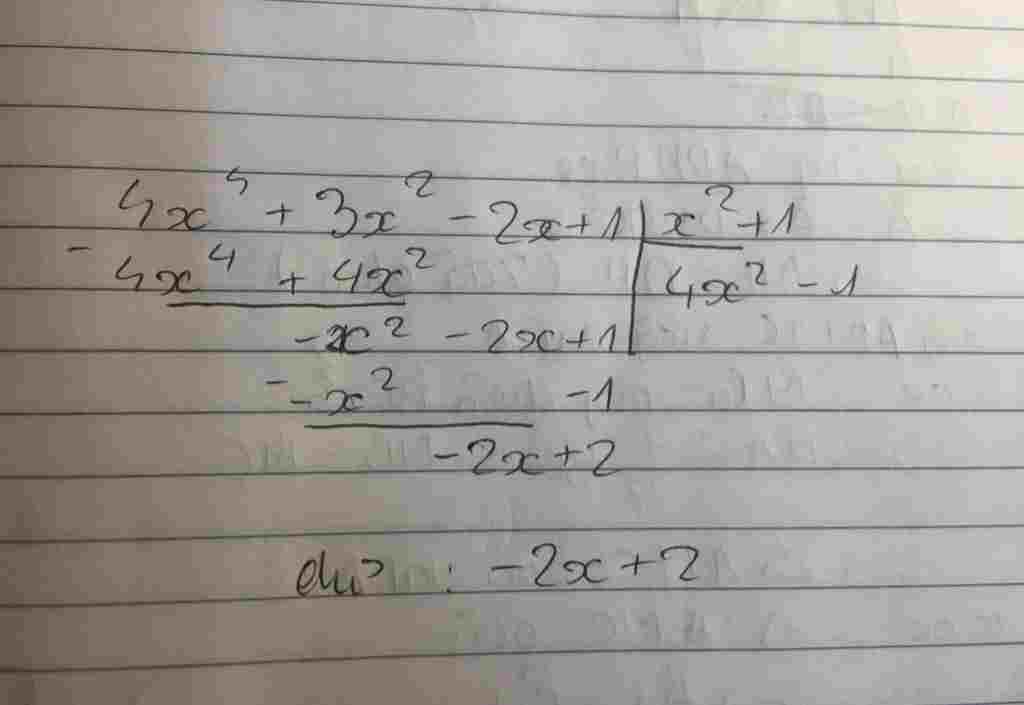 4x⁴ + 3x² - 2x + 1 | x² + 1
- 4x⁴ + 4x² | 4x² - 1
-x² - 2x + 1
- -x² - 1
-2x + 2
dư : -2x + 2